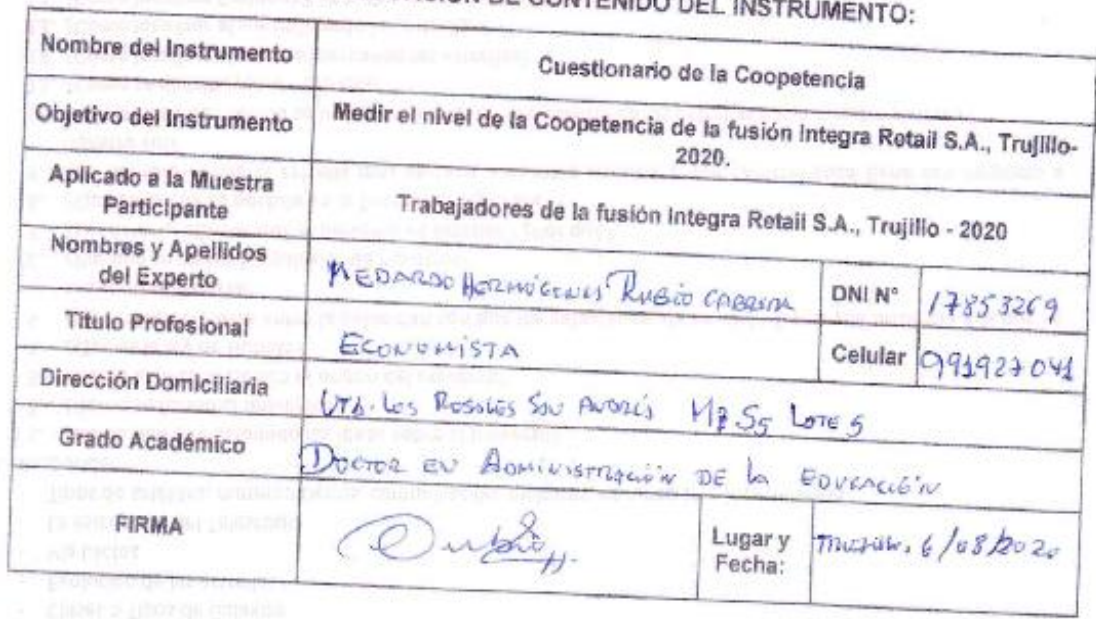 DE CONTENIDO DEL INSTRUMENTO:
Nombre del Instrumento
Cuestionario de la Coopetencia
Objetivo del Instrumento
Medir el nivel de la Coopetencia de la fusión Integra Retail S.A., Trujillo-
2020.
Aplicado a la Muestra
Participante
Trabajadores de la fusión Integra Retail S.A., Trujillo - 2020
Nombres y Apellidos
del Experto
MEDARDO HERMÓGENES RUBIO CABRERA
DNI N°
17853269
Título Profesional
ECONOMISTA
Celular
991927041
Dirección Domiciliaria
UTB. Los ROSALES SAN ANDRÉS MZ S5 LOTE 5
Grado Académico
DOCTOR EN ADMINISTRACIÓN DE la EDUCACIÓN
FIRMA
Lugar y
Fecha:
TRUJILLO, 6/08/2020